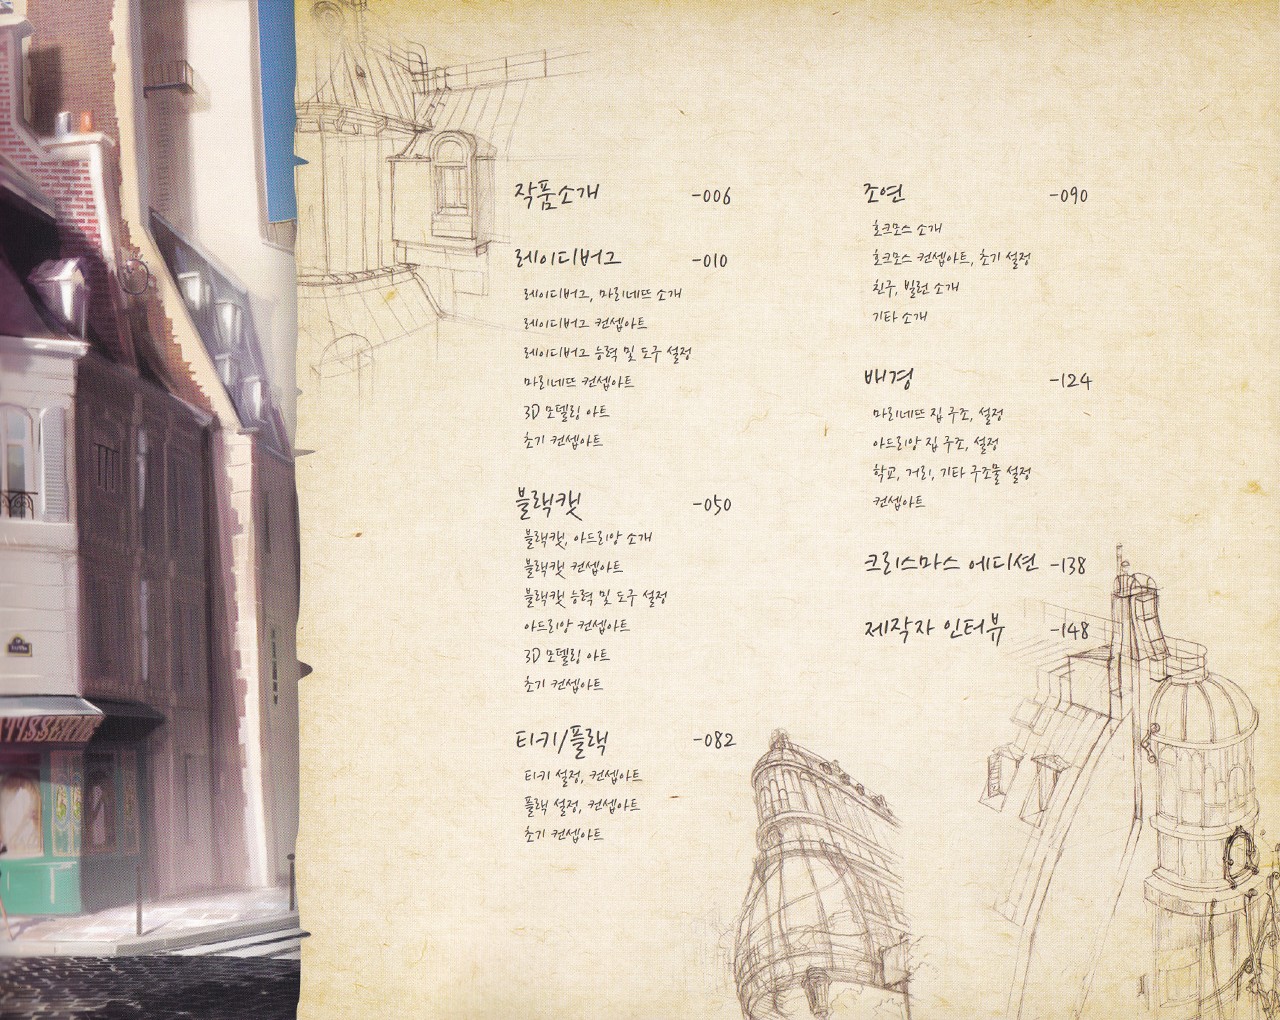 작품소개 -006
레이디버그 -010
레이디버그, 마리네뜨 소개
레이디버그 컨셉아트
레이디버그 능력 및 도구 설정
마리네뜨 컨셉아트
3D 모델링 아트
초기 컨셉아트
블랙캣 -050
블랙캣, 아드리앙 소개
블랙캣 컨셉아트
블랙캣 능력 및 도구 설정
아드리앙 컨셉아트
3D 모델링 아트
초기 컨셉아트
티키/플랙 -082
티키 설정, 컨셉아트
플랙 설정, 컨셉아트
초기 컨셉아트
조연 -090
호크모스 소개
호크모스 컨셉아트, 초기 설정
친구, 빌런 소개
기타 소개
배경 -124
마리네뜨 집 구조, 설정
아드리앙 집 구조, 설정
학교, 거리, 기타 구조물 설정
컨셉아트
크리스마스 에디션 -138
제작자 인터뷰 -148
ATISSERIE